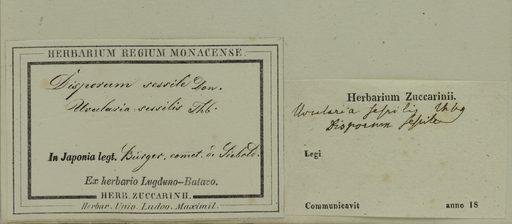 HERBARIUM REGIUM MONACENSE.
Disporum sessile Don.
Uvularia sessilis Thb.
In Japonia legt. Bürger, comet. de Siebold.
Ex herbario Lugduno-Batavo.
HERB. ZUCCARINII.
Herbar. Univ. Ludov. Maximil.
Herbarium Zuccarinii.
Uvularia sessilis Thbg
Disporum sessile
Legi
Communicavit anno 18